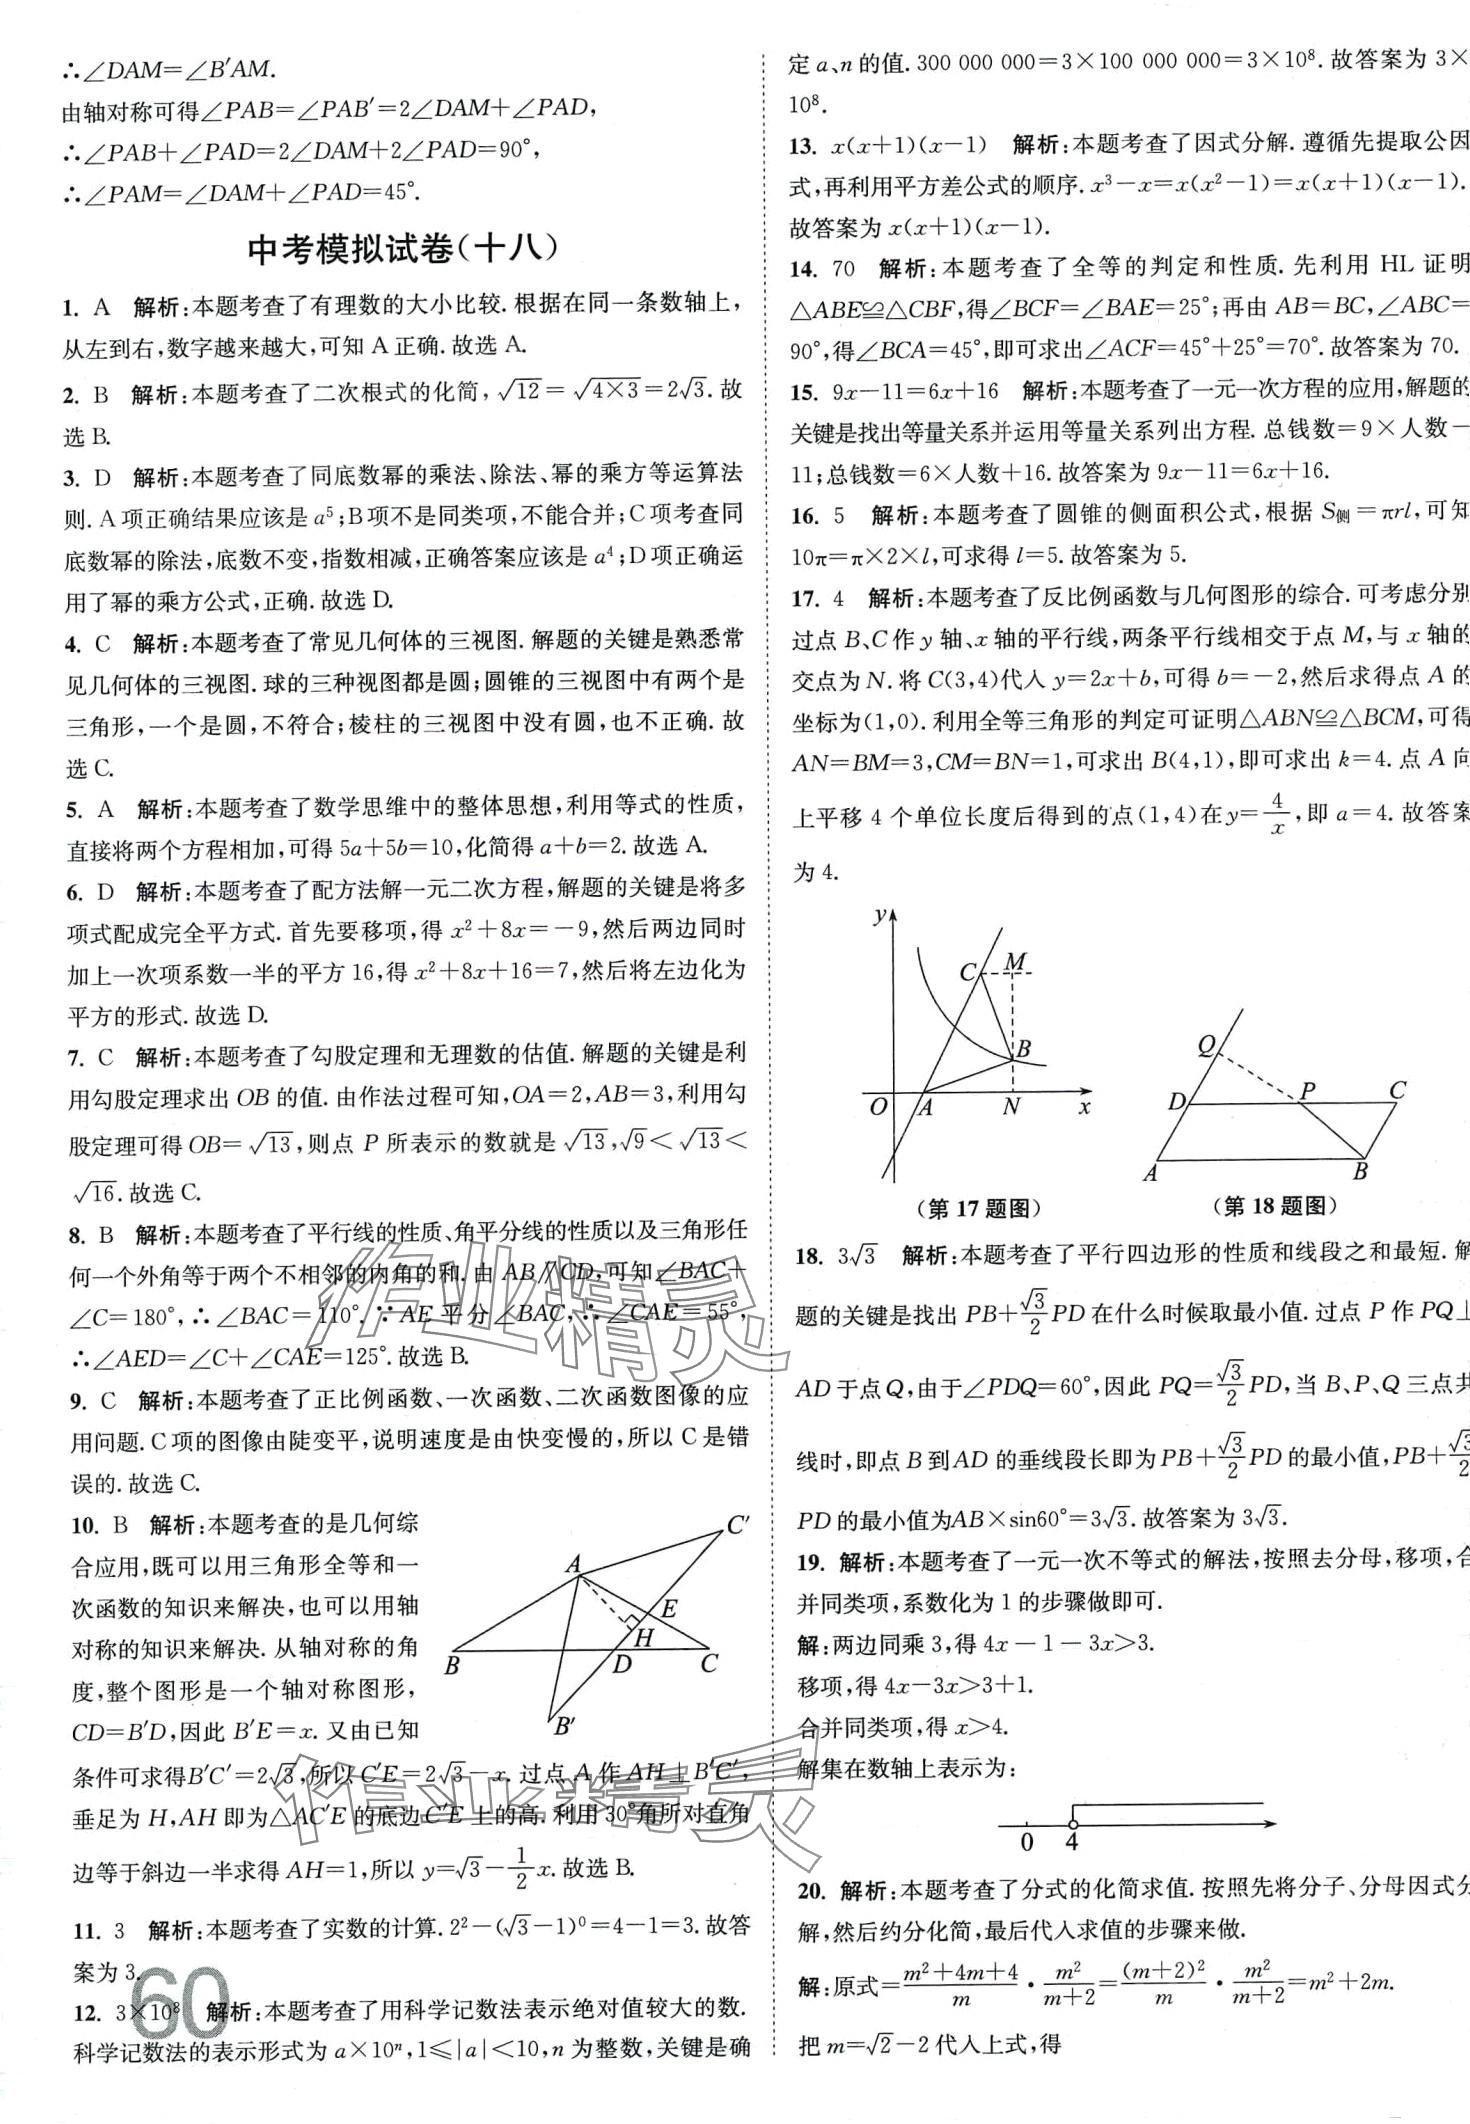 ∴∠DAM=∠B′AM.
由轴对称可得∠PAB=∠PAB′=2∠DAM+∠PAD,
∴∠PAB+∠PAD=2∠DAM+2∠PAD=90°,
∴∠PAM=∠DAM+∠PAD=45°.
中考模拟试卷(十八)
1. A 解析:本题考查了有理数的大小比较.根据在同一条数轴上,
从左到右,数字越来越大,可知A正确.故选A.
2. B 解析:本题考查了二次根式的化简,√12=√(4×3)=2√3.故
选B.
3. D 解析:本题考查了同底数幂的乘法、除法、幂的乘方等运算法
则.A项正确结果应该是a⁵;B项不是同类项,不能合并;C项考查同
底数幂的除法,底数不变,指数相减,正确答案应该是a⁴;D项正确运
用了幂的乘方公式,正确.故选D.
4. C 解析:本题考查了常见几何体的三视图.解题的关键是熟悉常
见几何体的三视图.球的三种视图都是圆;圆锥的三视图中有两个是
三角形,一个是圆,不符合;棱柱的三视图中没有圆,也不正确.故
选C.
5. A 解析:本题考查了数学思维中的整体思想,利用等式的性质,
直接将两个方程相加,可得5a+5b=10,化简得a+b=2.故选A.
6. D 解析:本题考查了配方法解一元二次方程,解题的关键是将多
项式配成完全平方式.首先要移项,得x²+8x=-9,然后两边同时
加上一次项系数一半的平方16,得x²+8x+16=7,然后将左边化为
平方的形式.故选D.
7. C 解析:本题考查了勾股定理和无理数的估值.解题的关键是利
用勾股定理求出OB的值.由作法过程可知,OA=2,AB=3,利用勾
股定理可得OB=√13,则点P所表示的数就是√13,√9<√13<
√16.故选C.
8. B 解析:本题考查了平行线的性质、角平分线的性质以及三角形任
何一个外角等于两个不相邻的内角的和.由AB∥CD,可知∠BAC+
∠C=180°,∴∠BAC=110°.∵AE平分∠BAC,∴∠CAE=55°,
∴∠AED=∠C+∠CAE=125°.故选B.
9. C 解析:本题考查了正比例函数、一次函数、二次函数图像的应
用问题.C项的图像由陡变平,说明速度是由快变慢的,所以C是错
误的.故选C.
10. B 解析:本题考查的是几何综
合应用,既可以用三角形全等和一
次函数的知识来解决,也可以用轴
对称的知识来解决.从轴对称的角
度,整个图形是一个轴对称图形,
CD=B′D,因此B′E=x.又由已知
条件可求得B′C′=2√3,所以C′E=2√3-x.过点A作AH⊥B′C′,
垂足为H,AH即为△AC′E的底边C′E上的高.利用30°角所对直角
边等于斜边一半求得AH=1,所以y=√3-1/2x.故选B.
C′
A
E
H
B
D
C
B′
11. 3 解析:本题考查了实数的计算.2²-(√3-1)⁰=4-1=3.故答
案为3.
12. 3×10⁸ 解析:本题考查了用科学记数法表示绝对值较大的数.
科学记数法的表示形式为a×10ⁿ,1≤|a|<10,n为整数,关键是确
60
定a、n的值.300 000 000=3×100 000 000=3×10⁸.故答案为3×
10⁸.
13. x(x+1)(x-1) 解析:本题考查了因式分解.遵循先提取公因
式,再利用平方差公式的顺序.x³-x=x(x²-1)=x(x+1)(x-1).
故答案为x(x+1)(x-1).
14. 70 解析:本题考查了全等的判定和性质.先利用HL证明
△ABE≌△CBF,得∠BCF=∠BAE=25°;再由AB=BC,∠ABC=
90°,得∠BCA=45°,即可求出∠ACF=45°+25°=70°.故答案为70.
15. 9x-11=6x+16 解析:本题考查了一元一次方程的应用,解题的
关键是找出等量关系并运用等量关系列出方程.总钱数=9×人数-
11;总钱数=6×人数+16.故答案为9x-11=6x+16.
16. 5 解析:本题考查了圆锥的侧面积公式,根据S侧=πrl,可知
10π=π×2×l,可求得l=5.故答案为5.
17. 4 解析:本题考查了反比例函数与几何图形的综合.可考虑分别
过点B、C作y轴、x轴的平行线,两条平行线相交于点M,与x轴的
交点为N.将C(3,4)代入y=2x+b,可得b=-2,然后求得点A的
坐标为(1,0).利用全等三角形的判定可证明△ABN≌△BCM,可得
AN=BM=3,CM=BN=1,可求出B(4,1),即可求出k=4.点A向
上平移4个单位长度后得到的点(1,4)在y=4/x,即a=4.故答案
为4.
y
C
M
B
O
A
N
x
(第17题图)
Q
D
P
C
A
B
(第18题图)
18. 3√3 解析:本题考查了平行四边形的性质和线段之和最短.解
题的关键是找出PB+√3/2PD在什么时候取最小值.过点P作PQ⊥
AD于点Q,由于∠PDQ=60°,因此PQ=√3/2PD,当B、P、Q三点共
线时,即点B到AD的垂线段长即为PB+√3/2PD的最小值,PB+√3/2
PD的最小值为AB×sin60°=3√3.故答案为3√3.
19. 解析:本题考查了一元一次不等式的解法,按照去分母,移项,合
并同类项,系数化为1的步骤做即可.
解:两边同乘3,得4x-1-3x>3.
移项,得4x-3x>3+1.
合并同类项,得x>4.
解集在数轴上表示为:
0 4
20. 解析:本题考查了分式的化简求值.按照先将分子、分母因式分
解,然后约分化简,最后代入求值的步骤来做.
解:原式=(m²+4m+4)/m·m²/(m+2)=(m+2)²/m·m²/(m+2)=m²+2m.
把m=√2-2代入上式,得
作业精灵
作业精灵